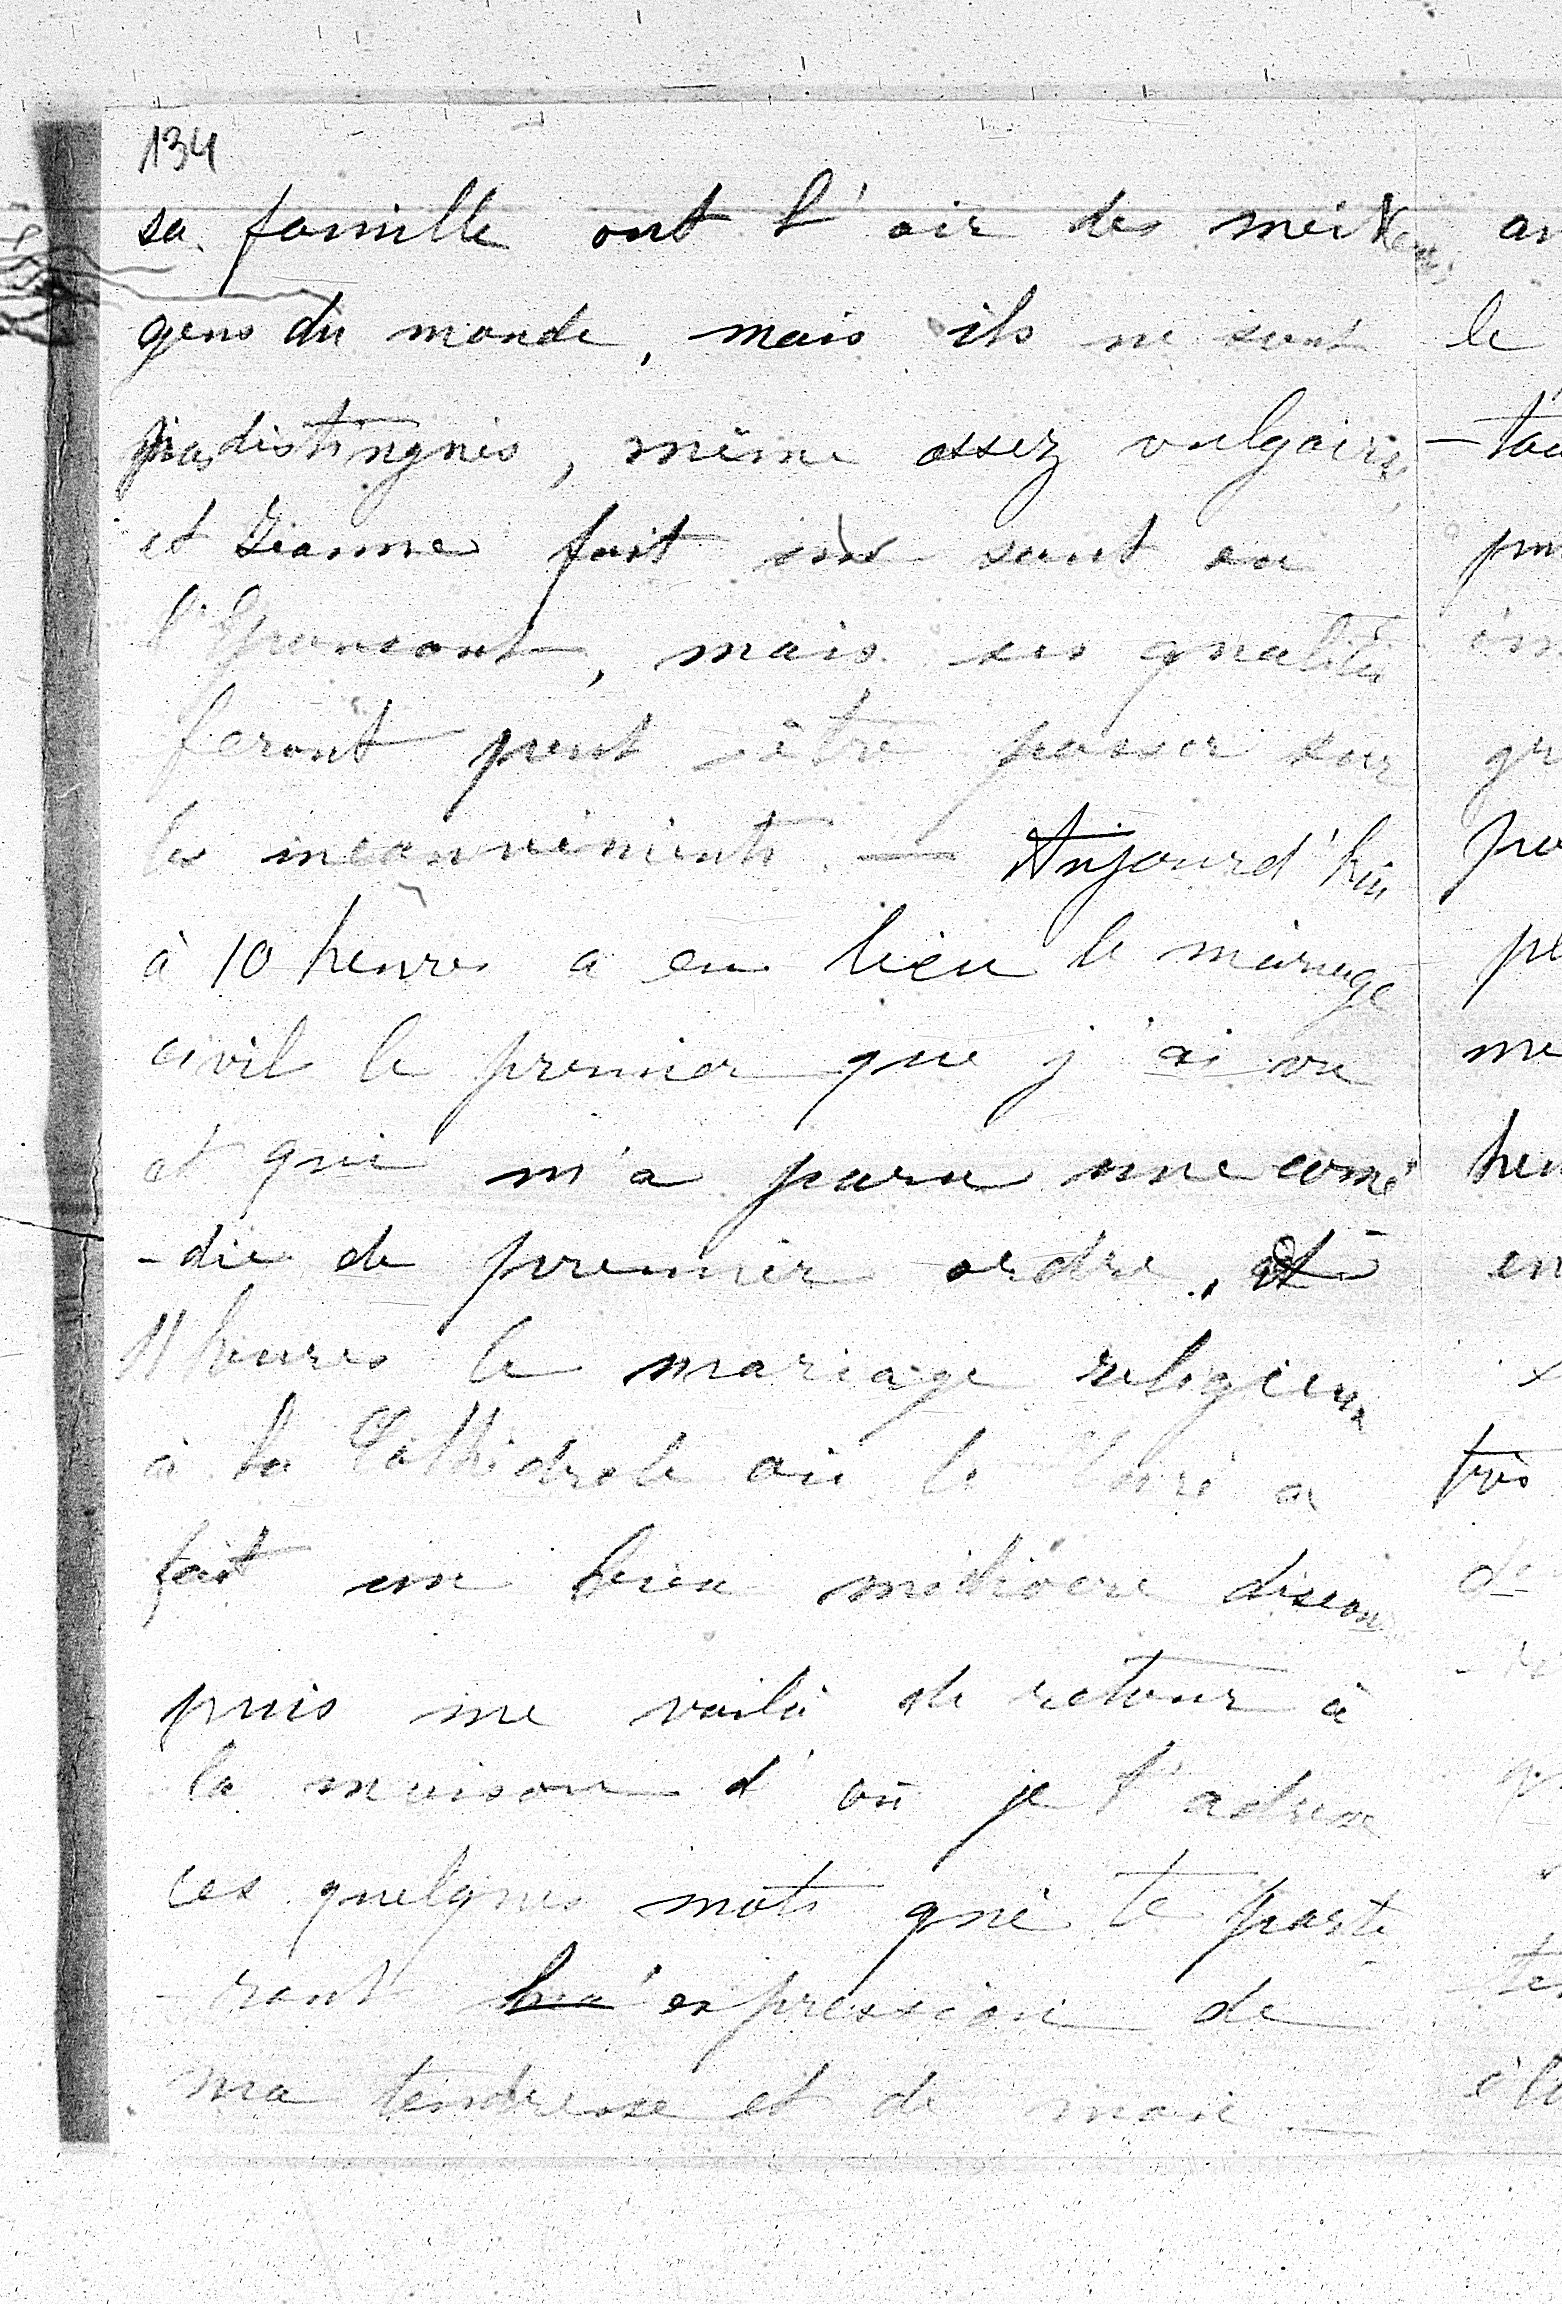 134
sa famille ont l'air des meilleurs
gens du monde, mais ils ne sont
pas distingués, même assez vulgaires,
et Jeanne fait sont en
l'épousant, mais ses qualités
feront peut être passer sur
les inconvénients. — Aujourd'hui
à 10 heures a eu lieu le mariage
civil le premier que j'ai vu
et qui m'a paru une comé
-die de premier ordre, et à
11 heures le mariage religieux
à la Cathédrale où le Curé a
fait un bien médiocre discours
puis me voilà de retour à
la maison d'où je t'adresse
ces quelques mots qui te porte
-ront l'expression de
ma tendresse et de
an
le
-tou
pu
im
gr
po
pe
me
heu
en
x
très
de